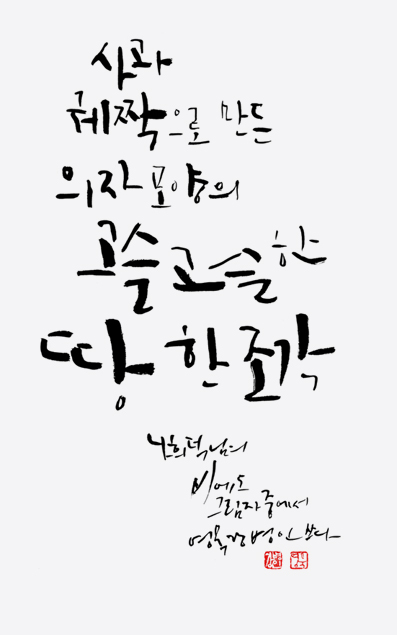 사과
궤짝으로 만든
의자 모양의
고슬고슬한
땅 한 조각
나희덕님의
비에도
그림자 중에서
병인 쓰다